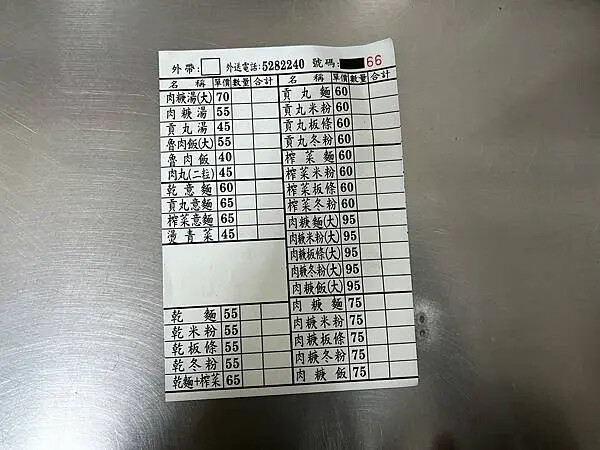 外帶: 外送電話:5282240 號碼: 66
名稱 單價 數量 合計
肉羹湯(大) 70
肉羹湯 55
貢丸湯 45
魯肉飯(大) 55
魯肉飯 40
肉丸(二粒) 45
乾意麵 60
貢丸意麵 65
榨菜意麵 65
燙青菜 45
乾麵 55
乾米粉 55
乾板條 55
乾冬粉 55
乾麵+榨菜 65
名稱 單價 數量 合計
貢丸麵 60
貢丸米粉 60
貢丸板條 60
貢丸冬粉 60
榨菜麵 60
榨菜米粉 60
榨菜板條 60
榨菜冬粉 60
肉羹麵(大) 95
肉羹米粉(大) 95
肉羹板條(大) 95
肉羹冬粉(大) 95
肉羹飯(大) 95
肉羹麵 75
肉羹米粉 75
肉羹板條 75
肉羹冬粉 75
肉羹飯 75